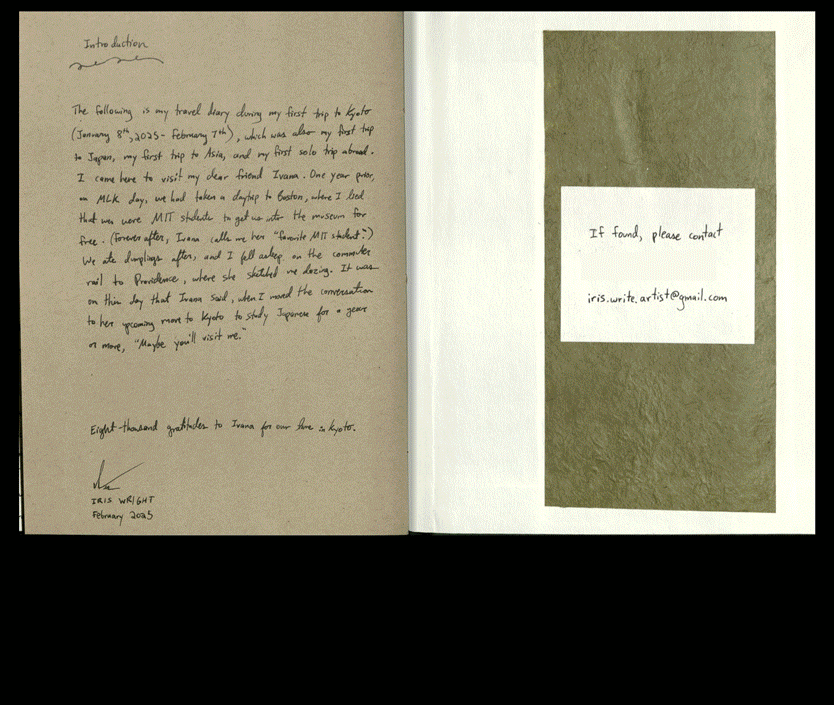 Introduction
The following is my travel diary during my first trip to Kyoto
(January 8th, 2025 - February 7th), which was also my first trip
to Japan, my first trip to Asia, and my first solo trip abroad.
I came here to visit my dear friend Ivana. One year prior,
on MLK day, we had taken a daytrip to Boston, where I lied
that we were MIT students to get us into the museum for
free. (Forever after, Ivana calls me her "favorite MIT student.")
We ate dumplings after, and I fell asleep on the commuter
rail to Providence, where she sketched me dozing. It was
on this day that Ivana said, when I moved the conversation
to her upcoming move to Kyoto to study Japanese for a year
or more, "Maybe you'll visit me."
Eight-thousand gratitudes to Ivana for our time in Kyoto.
IRIS WRIGHT
February 2025
If found, please contact
iris.write.artist@gmail.com